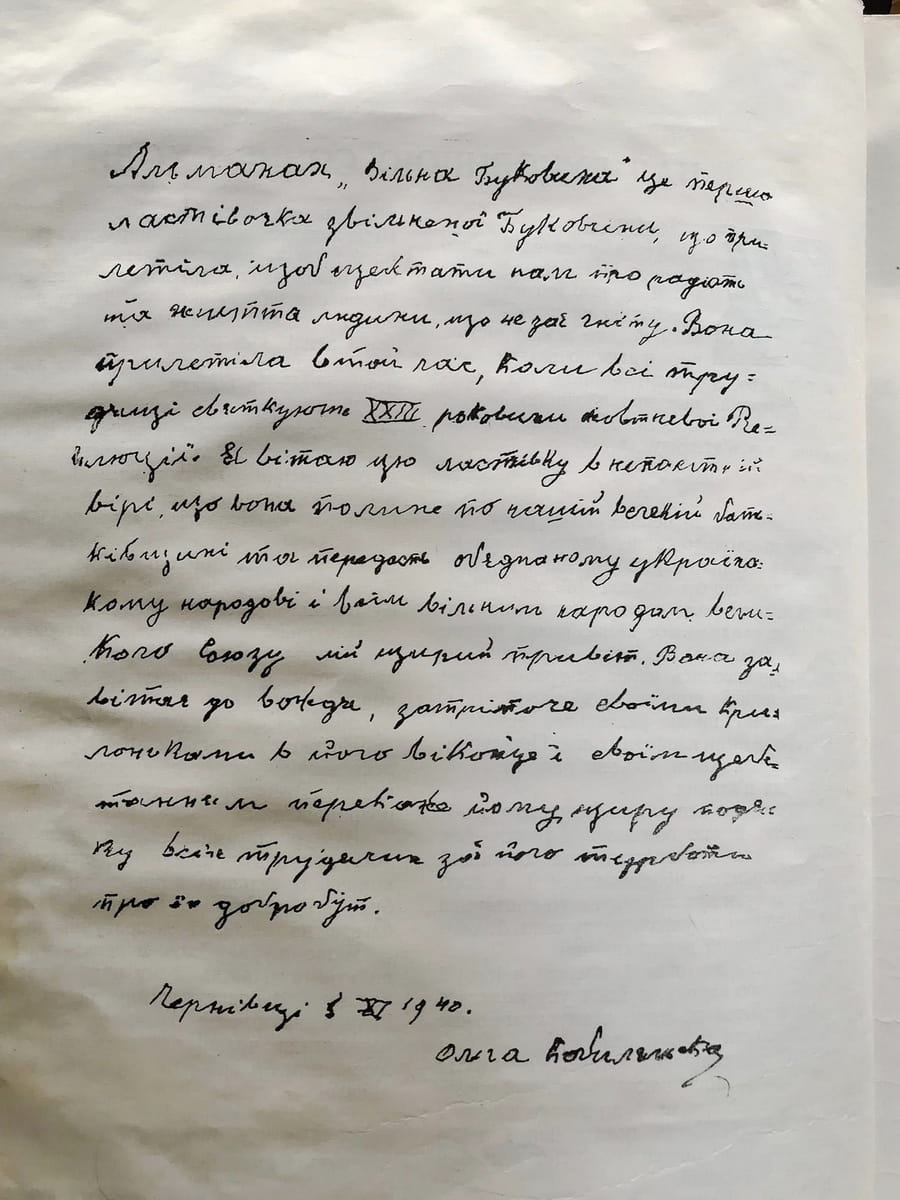 Альманах „Вільна Буковина" це перша
ластівочка звільненої Буковини, що при-
летіла, щоб щебетати нам про радість
та життя людини, що не зає гніту. Вона
прилетіла в той час, коли всі тру-
дящі святкують XXIII роковини Жовтневої Ре-
волюції. Я вітаю цю ластівку в непохитній
вірі, що вона полине по нашій великій бать-
ківщині та передасть об'єднаному українсь-
кому народові і всім вільним народам вели-
кого Союзу мій щирий привіт. Вона за-
вітає до вождя, затріпоче своїми кри-
лоньками в його віконце і своїм щебе-
танням перекаже йому щиру подя-
ку всіх трудящих за його турботи
про їх добробут.
Чернівці XI 1940.
Ольга Кобилянська